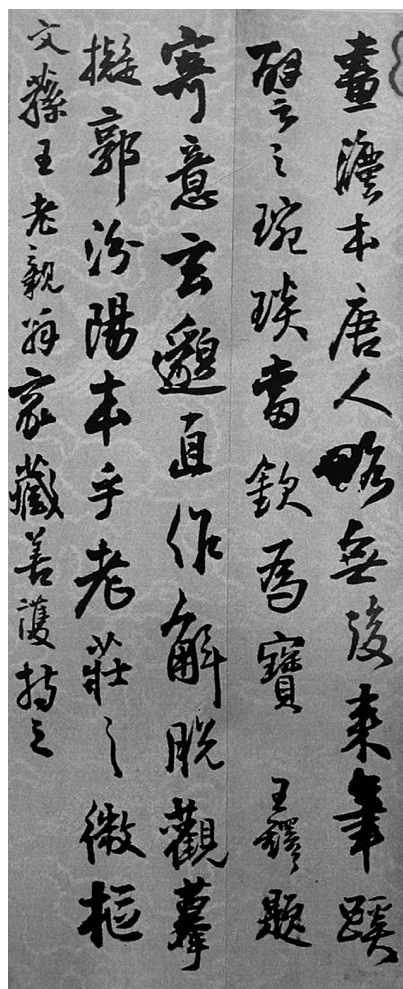 畫瀆本唐人略無後來筆蹊
譬之琬琰當欽為寶 王鐸題
寄意玄邈直作解脫觀摹
擬郭汾陽本乎老莊之微樞
文蓀王老親翁家藏善護持之